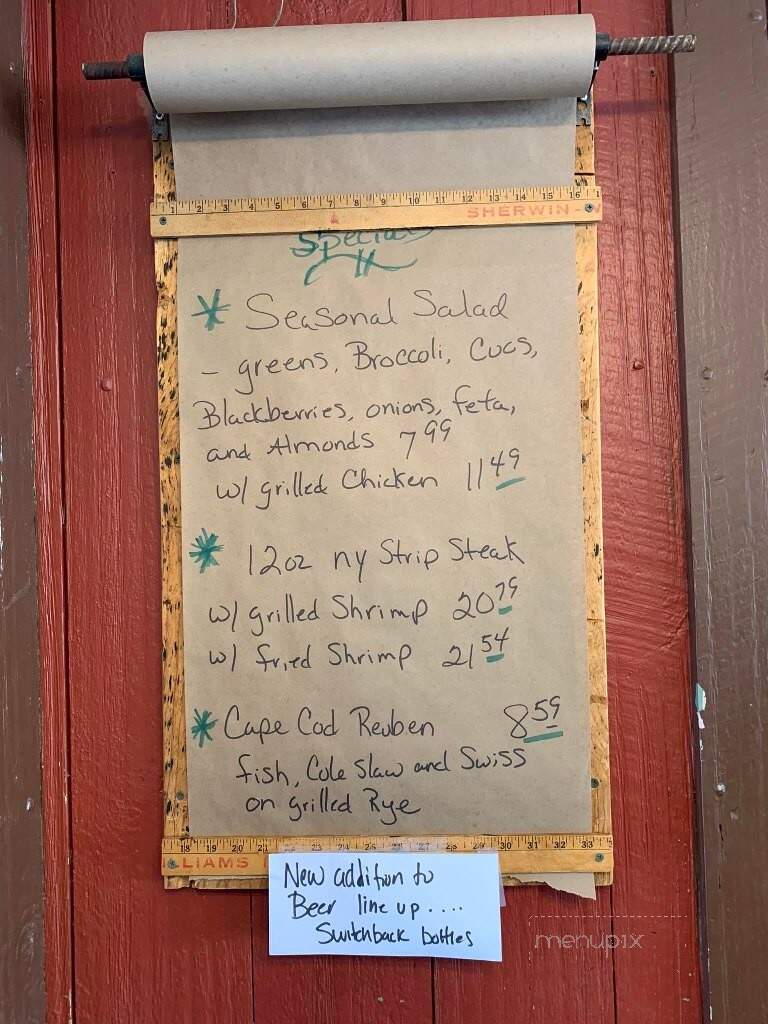 1 2 3 4 5 6 7 8 9 10 11 12 13 14 15 16
SHERWIN-W
Specials
* Seasonal Salad
- greens, Broccoli, Cucs,
Blackberries, onions, feta,
and Almonds 7 99
w/ grilled Chicken 11 49
* 12oz ny Strip Steak
w/ grilled Shrimp 20 79
w/ fried Shrimp 21 54
* Cape Cod Reuben 8 59
fish, Cole Slaw and Swiss
on grilled Rye
18 19 20 21 22 23 24 25 26 27 28 29 30 31 32 33
LLIAMS
New addition to
Beer line up....
Switchback bottles
menupix